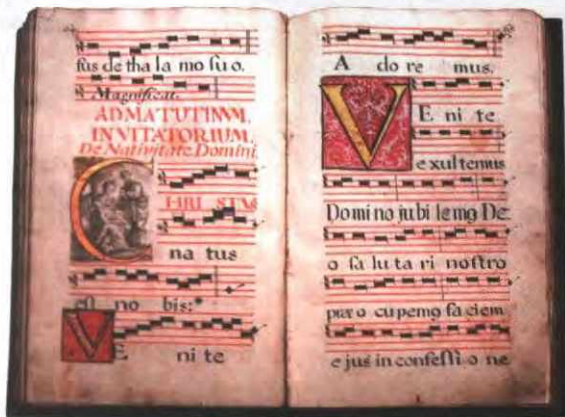 sus de tha la mo su o.
Magnificat.
AD MATUTINVM.
INVITATORIUM.
De Nativitate Domini.
CHRI STVS
na tus
est no bis:*
VE ni te
A do re mus.
VE ni te
exultemus
Domino jubilemꝰ De
o sa lu ta ri nostro
præo cupemꝰ faciem
ejus in confessi o ne